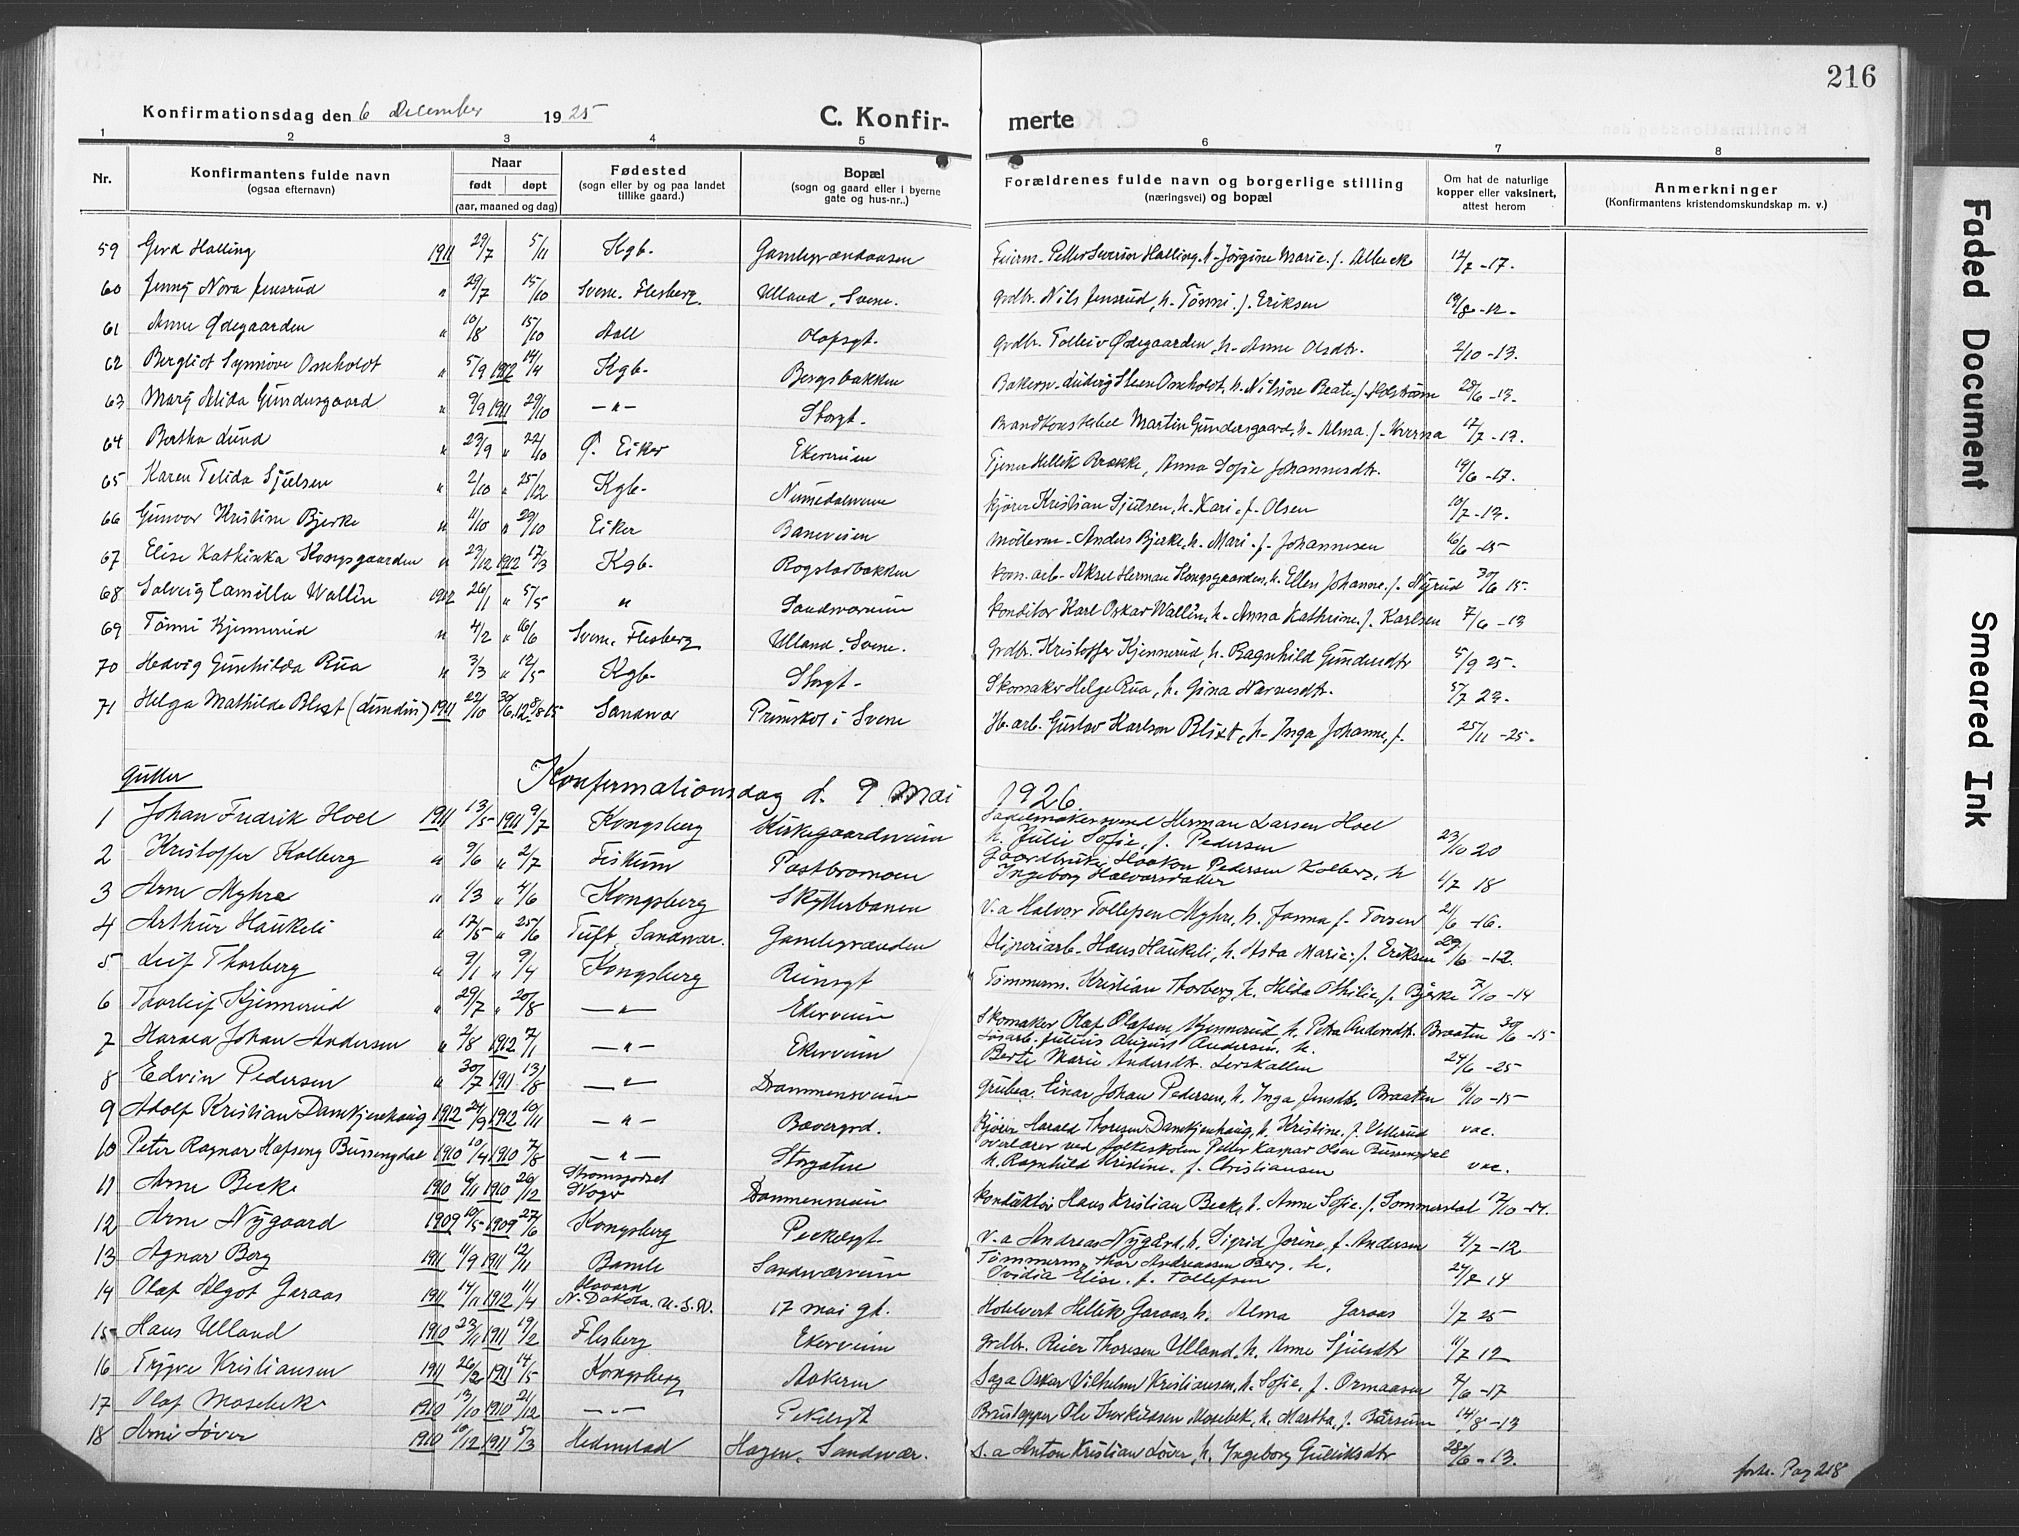 216
Konfirmationsdag den 6 December 1925
C. Konfirmerte
1 2 3 4 5 6 7 8
Nr.
Konfirmantens fulde navn (ogsaa efternavn)
Naar født døpt (aar, maaned og dag)
Fødested (sogn eller by og paa landet tillike gaard.)
Bopæl (sogn og gaard eller i byerne gate og hus-nr..)
Forældrenes fulde navn og borgerlige stilling (næringsvei) og bopæl
Om hat de naturlige kopper eller vaksinert, attest herom
Anmerkninger (Konfirmantens kristendomskundskap m. v.)
59 Gerd Halling 1911 29/7 5/11 Kgb. Gamlegrændaasen Feierm. Petter Severin Halling, h. Jørgine Marie f. 12/7 -17.
60 Jenny Nora Jensrud " 29/7 15/10 Svene, Flesberg. Ulland, Svene. Grdbr. Nils Jensrud, h. Tønni f. Eriksen 19/8 -12-
61 Anne Ødegaarden " 10/8 15/10 Aall Olafsgt. Grdbr. Tolleiv Ødegaarden, h. Anne Olsdtr. 2/10 -13.
62 Bergliot Synnøve Omholdt " 5/9 1912 14/4 Kgb- Bergsbakken Bakerm. Ludvig Steen Omholdt, h. Nilsine Beate f. Holstrøm 28/6 -13.
63 Mary Alida Gundersgaard " 9/9 1911 29/10 -"- Storgt. Brandkonstabel Martin Gundersgaard, h. Alma f. Kverna 17/7 -13.
64 Bertha Lund " 23/9 " 22/10 Ø. Eiker Ekerveien Tjener Hellik Brække, Anna Sofie Johannesdtr. 19/6 -17.
65 Karen Telida Sjulsen " 2/10 " 25/12 Kgb- Numedalsveien Kjører Kristian Sjulsen, h. Kari f. Olsen 19/7 -13.
66 Gunvor Kristine Bjerke " 11/10 " 29/10 Eiker Baneveien Møllerm. Anders Bjerke, h. Mari f. Johannesen 16/6 -15
67 Elise Kathinka Kongsgaarden " 23/12 1912 17/3 Kgb- Rogstadbakken Kom. arb. Aksel Herman Kongsgaarden, h. Ellen Johanne f. Nyrud 30/6 15.
68 Solveig Camilla Wallin 1912 26/1 " 5/5 " Sandsværveien Konditor Karl Oskar Wallin, h. Anna Kathrine f. Karlsen 7/6 -13
69 Tønni Kjennerud " 4/2 " 16/6 Svene, Flesberg Ulland, Svene. Grdbr. Kristoffer Kjennerud, h. Ragnhild Gundersdtr 5/9 25.
70 Hedvig Gunhilda Rua " 3/3 " 12/5 Kgb- Storgt. Skomaker Helge Rua, h. Gina Narvesdtr. 5/7 23.
71 Helga Mathilde Blixt (Lundin) 1911 22/10 30/6.12 8/8 15 Sandsvær Primskot i Svene Hb. arb. Gustav Karlson Blixt, h. Inga Johanne, f. 25/11 -25.
Gutter Konfirmationsdag d. 9 Mai 1926.
1 Johan Fredrik Hoel 1911 13/5 1911 9/7 Kongsberg Kirkegaardsveien Sadelmakersvend Herman Larsen Hoel h. Julie Sofie, f. Pedersen 23/10 20
2 Kristoffer Kolberg " 9/6 " 2/7 Fiskum Pastbromoen Gaardbruker Haakon Pedersen Kolberg, h Ingeborg Halvorsdatter 4/7 18
3 Arne Myhre " 1/3 " 4/6 Kongsberg Skytterbanen V.a Halvor Tollefsen Myhre, h. Janna f. Torsen 21/6 -16.
4 Arthur Haukeli " 17/5 " 25/6 Tuft, Sandsvær. Gamlegrænden Sliperiarb. Hans Haukeli, h. Asta Marie f. Eriksen 29/6 -12.
5 Leif Thorberg " 9/1 " 9/4 Kongsberg Reinsgt Tømmerm. Kristian Thorberg, h. Hilda Othilie, f. Bjerke 7/10 -14
6 Thorleif Kjennerud " 29/7 " 20/8 -"- Ekerveien Skomaker Olaf Olafsen Kjennerud, h. Petra Andersdtr. Braaten 30/6 -15
7 Harald Johan Andersen " 2/8 1912 7/1 -"- Ekerveien Løsarb. Julius August Andersen, h. Berte Marie Andersdtr. Lerskallen 24/6 -25
8 Edvin Pedersen " 30/7 1911 13/8 -"- Drammensveien Grubea. Einar Johan Pedersen, h. Inga Jensdtr. Braaten 6/10 -15
9 Adolf Kristian Damkjenhaug 1912 24/9 1912 10/11 -"- Bævergrd. Kjører Harald Thoresen Damkjenhaug, h. Kristine, f. Vetterud vac.
10 Peter Ragnar Hafseng Bussengdal 1910 10/4 1910 7/8 -"- Storgaten Overlærer ved folkeskolen Petter Kaspar Olsen Bussengdal h. Ragnhild Kristine, f. Christiansen vac.
11 Arne Becke 1910 6/11 1910 26/12 Strømsgodset Skoger Drammensveien Konduktør Hans Kristian Becke, h. Anne Sofie f. Sommerstad 12/10 -14.
12 Arne Nygaard 1909 10/5 1909 27/6 Kongsberg Peckelsgt. V.a Andreas Nygård, h. Sigrid Jorine, f. Andersen 4/7 -12
13 Agnar Berg 1911 11/9 1911 12/11 Bamle Sandsværveien Tømmerm. Thor Andreassen Berg, h. Ovidia Elise, f. Tollefsen 24/7 14
14 Olaf Algot Garaas 1911 14/11 1912 11/4 N. Dakota. U.S.A. 17 mai gt. Hellik Garaas, h. Alma Garaas 1/7 25
15 Hans Ulland 1910 23/11 1911 19/2 Flesberg Ekerveien Grdbr. Reier Thoresen Ulland, h. Anne Sjulsdtr 11/7 12
16 Trygve Kristiansen 1911 26/2 1911 14/5 Kongsberg Aakeren Saga Oskar Vilhelm Kristiansen, h. Sofie, f. Ormaasen 7/6 -17
17 Olaf Mosebek 1910 13/10 1910 21/12 -"- Pekelsgt Brustapper Ole Torkildsen Mosebek, h. Martha, f. Bårsum 14/8 -13
18 Arne Løver 1910 10/12 1911 5/3 Hedenstad Hagen, Sandsvær. S.a Anton Kristian Løver, h. Ingeborg Gulliksdtr 28/6 -13.
forts. Pag 218
Faded Document
Smeared Ink